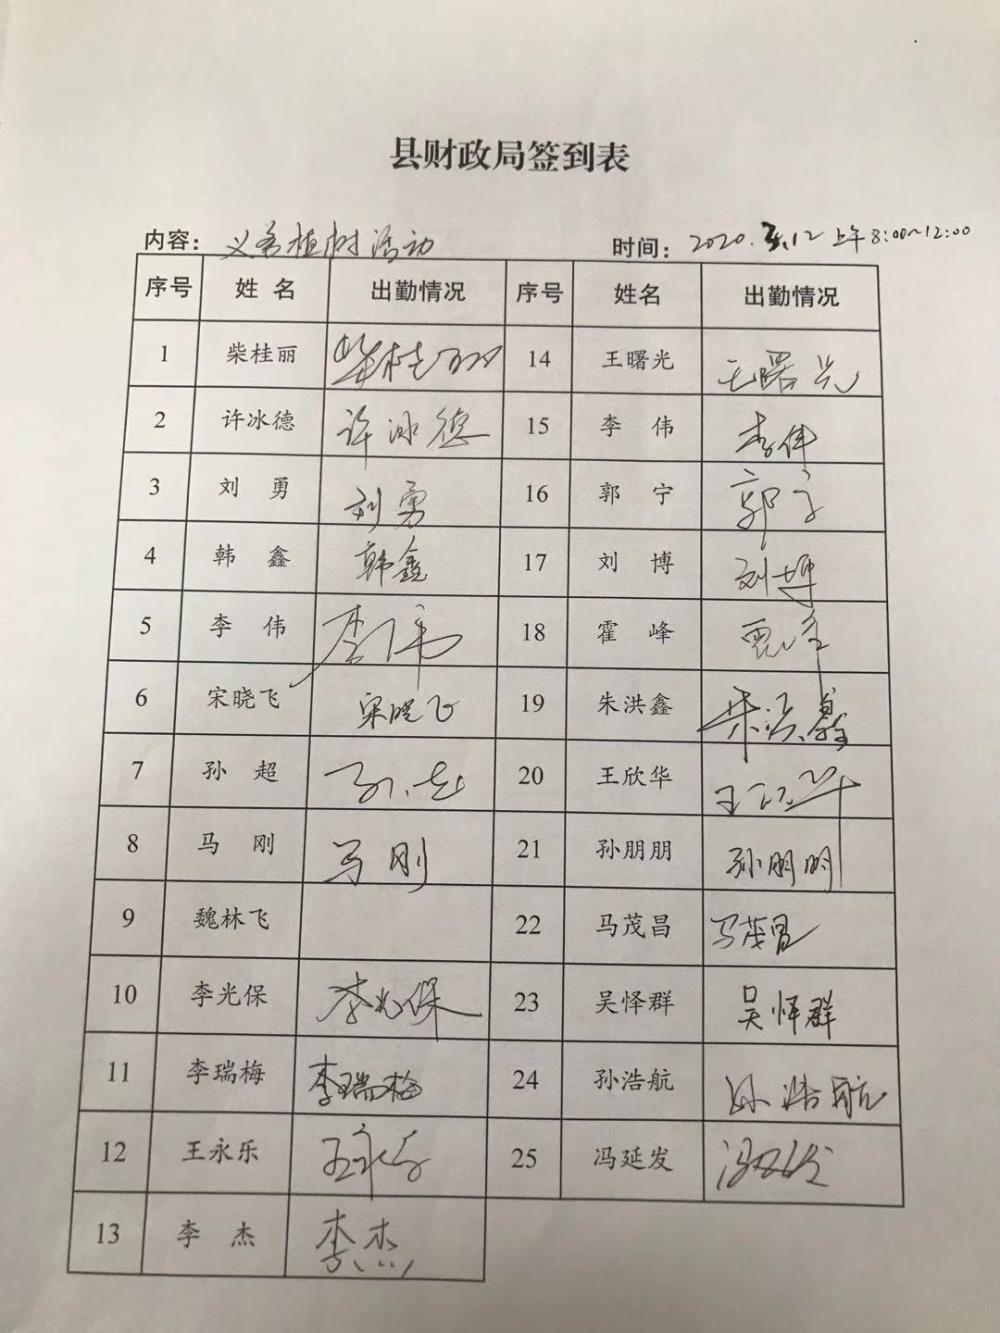 县财政局签到表
内容：义务植树活动 时间：2020.3.12 上午8:00~12:00
序号 姓名 出勤情况 序号 姓名 出勤情况
1 柴桂丽 柴桂丽 14 王曙光 王曙光
2 许冰德 许冰德 15 李伟 李伟
3 刘勇 刘勇 16 郭宁 郭宁
4 韩鑫 韩鑫 17 刘博 刘博
5 李伟 李伟 18 霍峰 霍峰
6 宋晓飞 宋晓飞 19 朱洪鑫 朱洪鑫
7 孙超 孙超 20 王欣华 王欣华
8 马刚 马刚 21 孙朋朋 孙朋朋
9 魏林飞 22 马茂昌 马茂昌
10 李光保 李光保 23 吴怿群 吴怿群
11 李瑞梅 李瑞梅 24 孙浩航 孙浩航
12 王永乐 王永乐 25 冯延发 冯延发
13 李杰 李杰